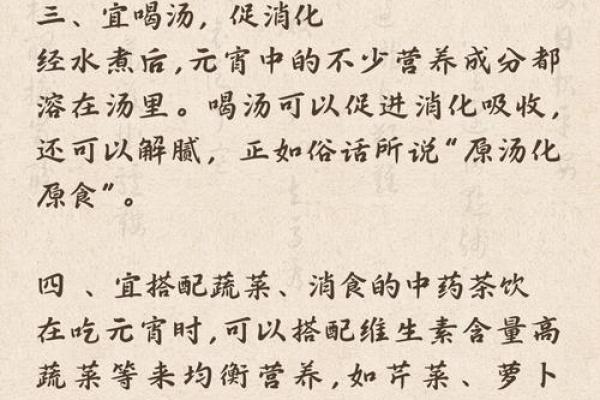 三、宜喝汤，促消化
经水煮后，元宵中的不少营养成分都
溶在汤里。喝汤可以促进消化吸收，
还可以解腻，正如俗话所说“原汤化
原食”。
四 、宜搭配蔬菜、消食的中药茶饮
在吃元宵时，可以搭配维生素含量高
蔬菜等来均衡营养，如芹菜、萝卜